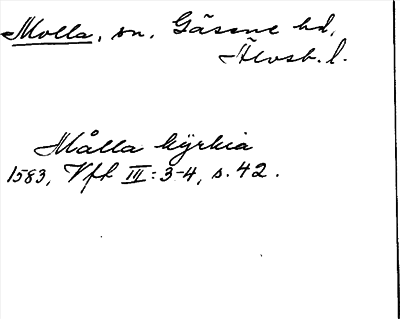 Molla, sn. Gäsene hd,
Älvsb. l.
Målla kÿrkia
1583, Vfh III: 3-4, s. 42.